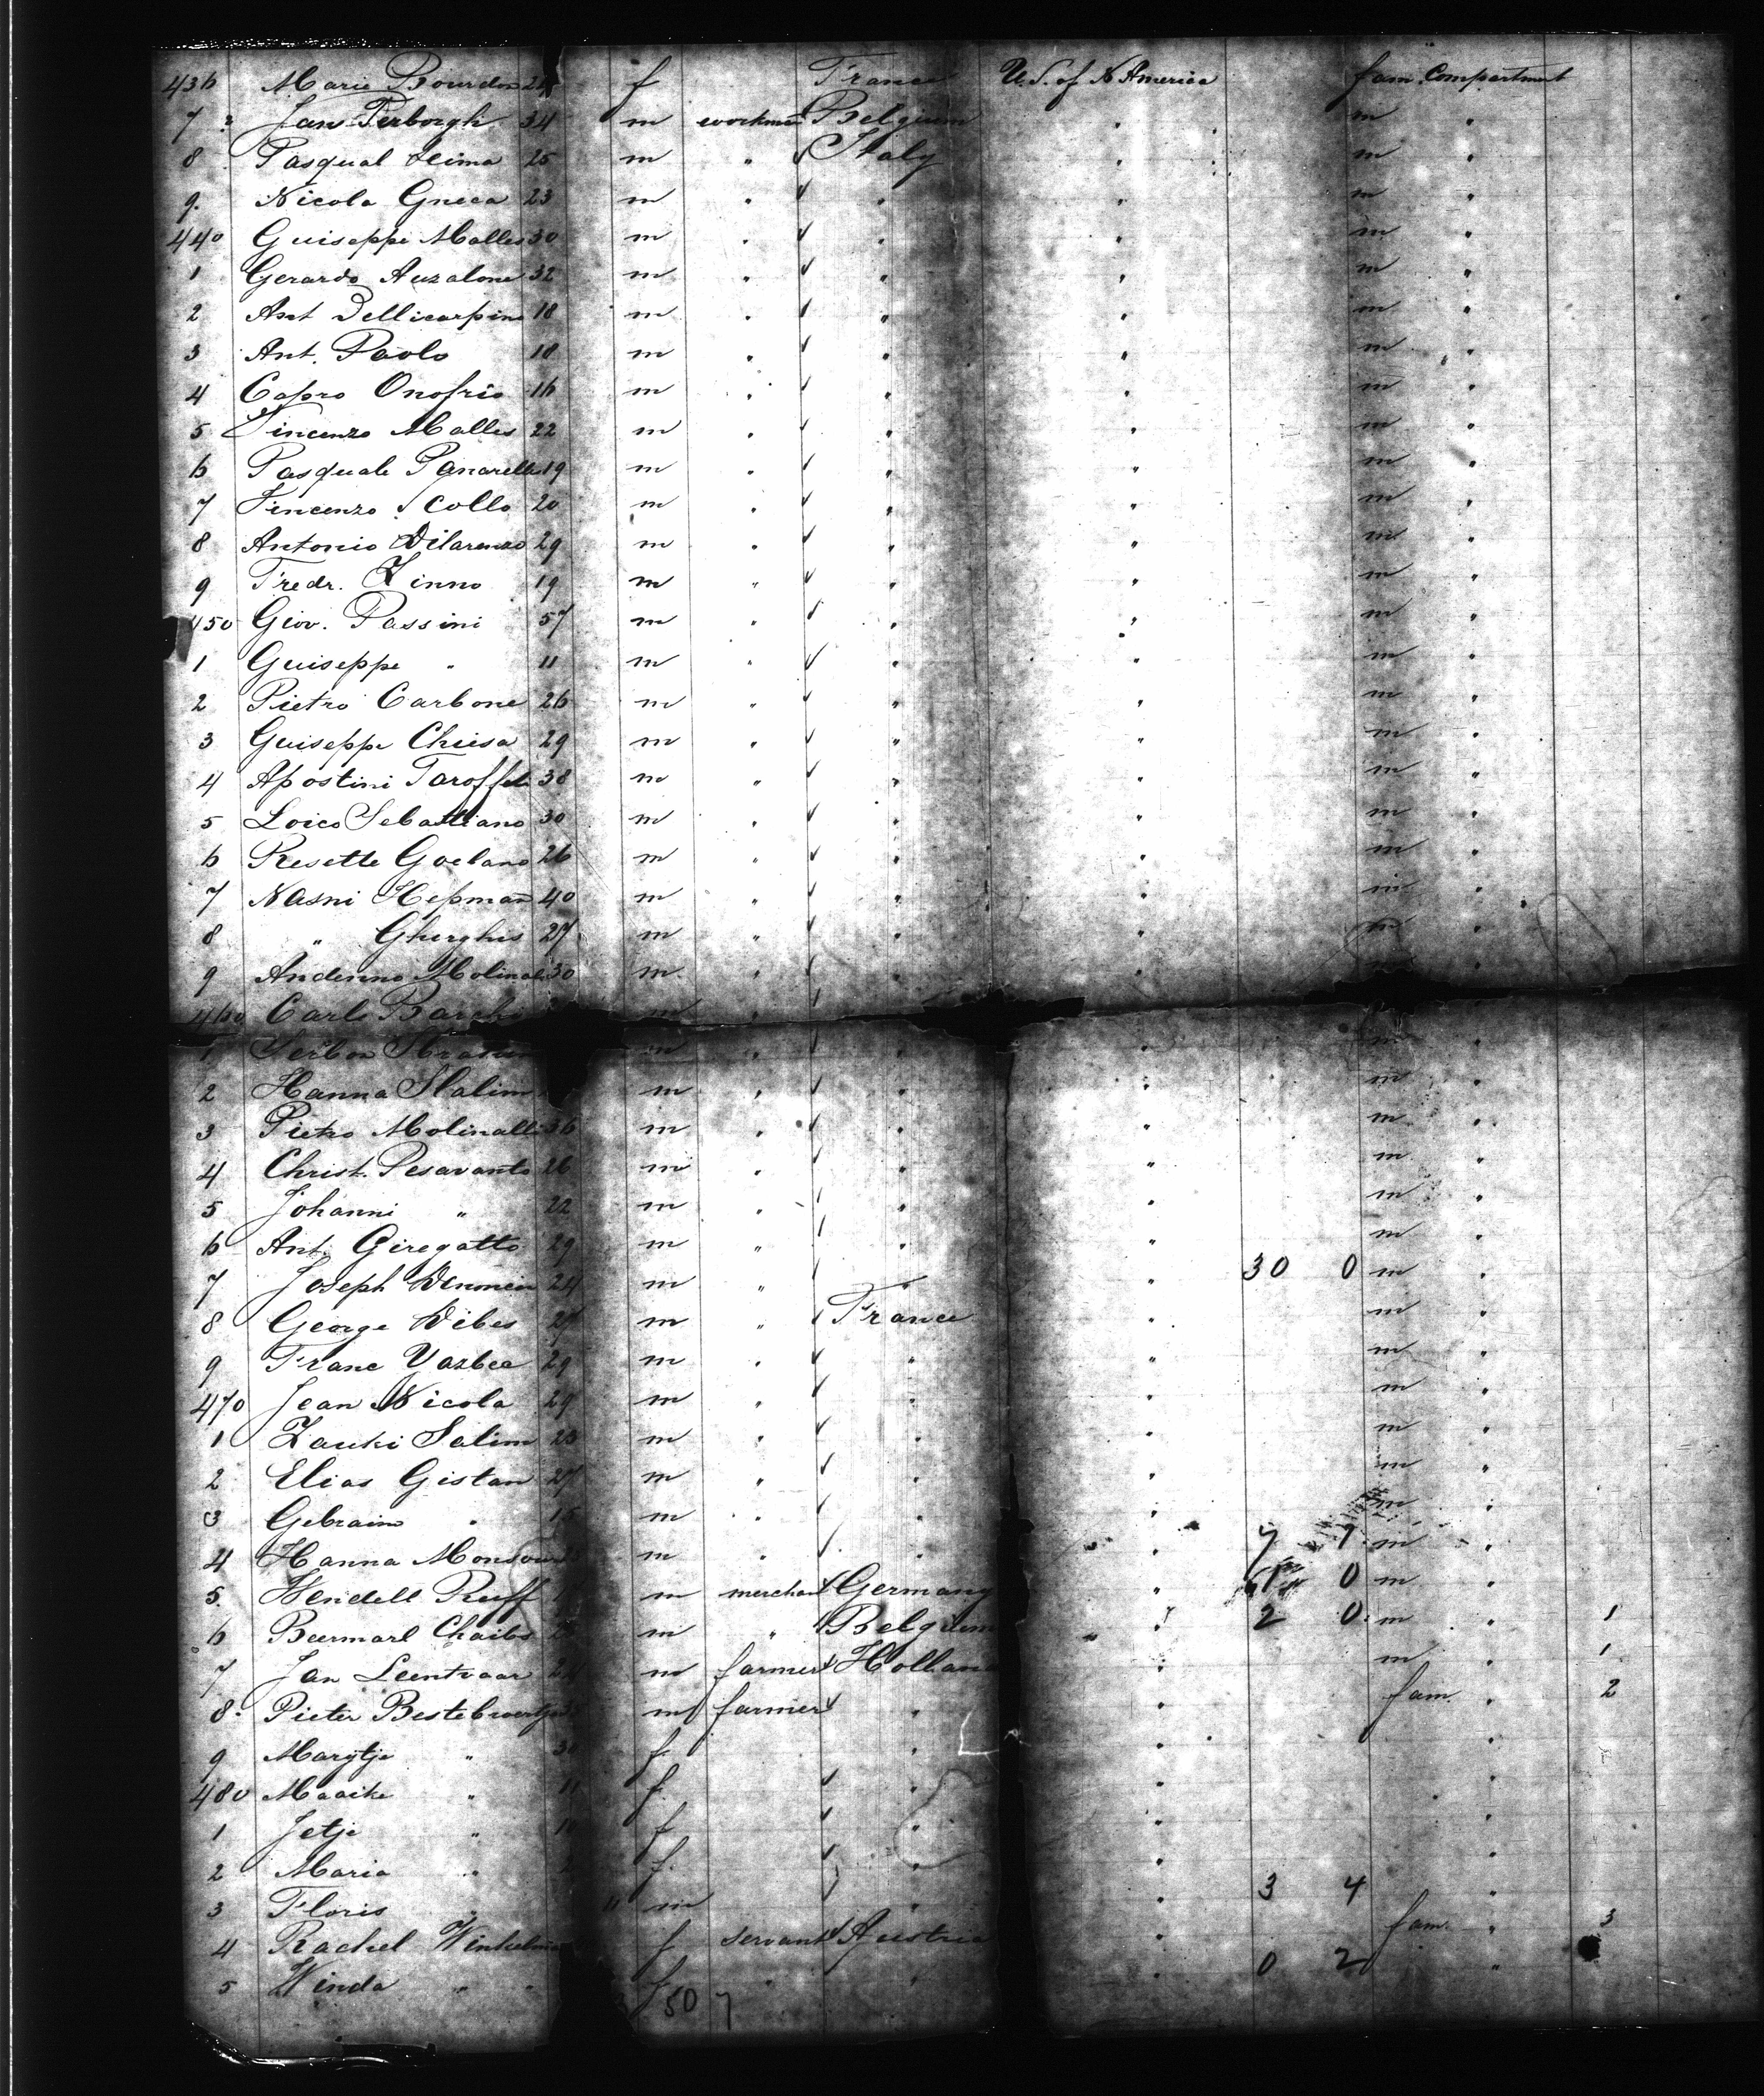 436 Marie Bourdon 24 f France U.S. of N America fam. Compartment
7 Jan Perborgh 34 m workman Belgium " m "
8 Pasqual Clima 25 m " Italy " m "
9. Nicola Gneca 23 m " " " m "
440 Guiseppe Malles 30 m " " " m "
1 Gerardo Auzalone 32 m " " " m "
2 Ant Dellicarpine 18 m " " " m "
3 Ant. Paolo 18 m " " " m "
4 Capro Onofrio 16 m " " " m "
5 Vincenzo Malles 22 m " " " m "
6 Pasquale Panarella 19 m " " " m "
7 Vincenzo Scollo 20 m " " " m "
8 Antonio Dilarenzo 29 m " " " m "
9 Fredr. Zinno 19 m " " " m "
450 Giov. Passini 57 m " " " m "
1 Guiseppe " 11 m " " " m "
2 Pietro Carbone 26 m " " " m "
3 Guiseppe Chiesa 29 m " " " m "
4 Apostini Taroffeli 38 m " " " m "
5 Loico Sebastiano 30 m " " " m "
6 Resette Goelano 26 m " " " m "
7 Nasni Hepman 40 m " " " m "
8 " Gherghis 27 m " " " m "
9 Andenno Molinali 30 m " " " "
460 Carlo Barchi m "
1 m " " " m "
2 Hanna Slalim m " " " m "
3 Pietro Molinalli 36 m " " " m "
4 Christ. Pesavanto 26 m " " " m "
5 Johanni " 22 m " " " m "
6 Ant. Giregatto 29 m " " " m "
7 Joseph Venmen 24 m " " 30 0 m "
8 George Dibes 27 m " France " m "
9 Franc Yazbee 29 m " " " m "
470 Jean Nicola 29 m " " " m "
1 Zauki Salim 23 m " " " m "
2 Elias Gistan 27 m " " " m "
3 Gebraim " 15 m " " " m "
4 Hanna Monsour m " " " 7 7 m "
5. Wendell Ruff m merchant Germany " 1 0 m "
6 Beermarl Chaibs m " Belgium " 2 0 m " 1
7 Jan Leentvaar m farmer Holland " m " 1
8. Pieter Bestebroertje m farmer " " fam. " 2
9 Marytje " 30 f " "
480 Maaike " 11 f " " "
1 Jetje " 10 f " " "
2 Maria " f. " " "
3 Floris " m " " 3 4 "
4 Rachel Winkelman f servant Austria " fam. " 3
5 Winda " f " " " 0 2 "
50 7